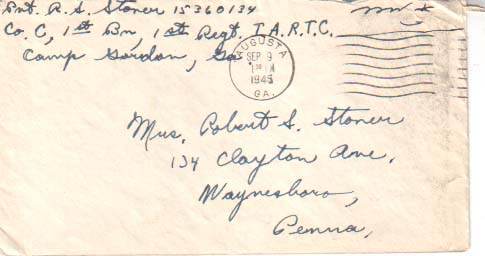 Pvt. R. S. Stoner 15360134
Co. C, 1st Bn, 1st Regt. I.A.R.T.C.
Camp Gordon, Ga.
AUGUSTA
SEP 9
1945
GA.
Mrs. Robert S. Stoner
134 Clayton Ave.
Waynesboro,
Penna,